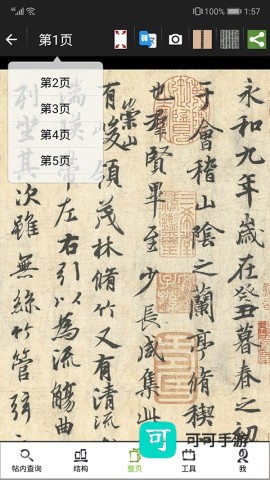 100%
1:57
第1页
第2页
第3页
第4页
第5页
永和九年歲在癸丑暮春之初
于會稽山陰之蘭亭脩稧
也羣賢畢至少長咸集此
有崇山
峻領茂林脩竹又有清流
帶左右引以為流觴曲
列坐其次雖無絲竹管弦
可
可可手游
帖内查询
结构
整页
工具
我